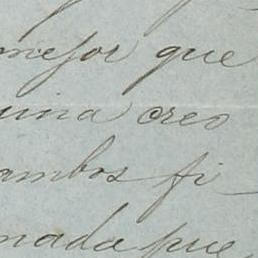 mejor que
uina creo
ambos fi-
nada pue